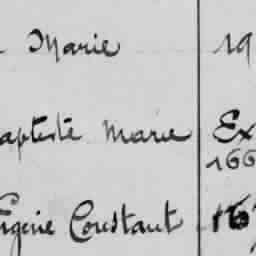 Marie 19
aptiste Marie Ex
166
Eugène Constant 167